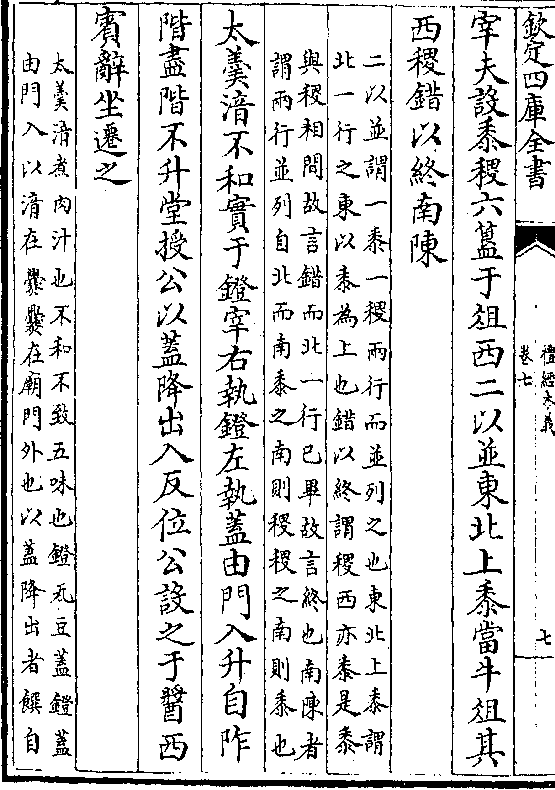 欽定四庫全書
禮經本義
卷七
七
宰夫設黍稷六簋于俎西二以並東北上黍當牛俎其
西稷錯以終南陳
二以並謂一黍一稷兩行而並列之也東北上黍謂
北一行之東以黍為上也錯以終謂稷西亦黍是黍
與稷相間故言錯而北一行已畢故言終也南陳者
謂兩行並列自北而南黍之南則稷稷之南則黍也
太羹湆不和實于鐙宰右執鐙左執蓋由門入升自阼
階盡階不升堂授公以蓋降出入反位公設之于醬西
賓辭坐遷之
太羹湆煮肉汁也不和不致五味也鐙瓦豆蓋鐙蓋
由門入以湆在爨爨在廟門外也以蓋降出者饌自